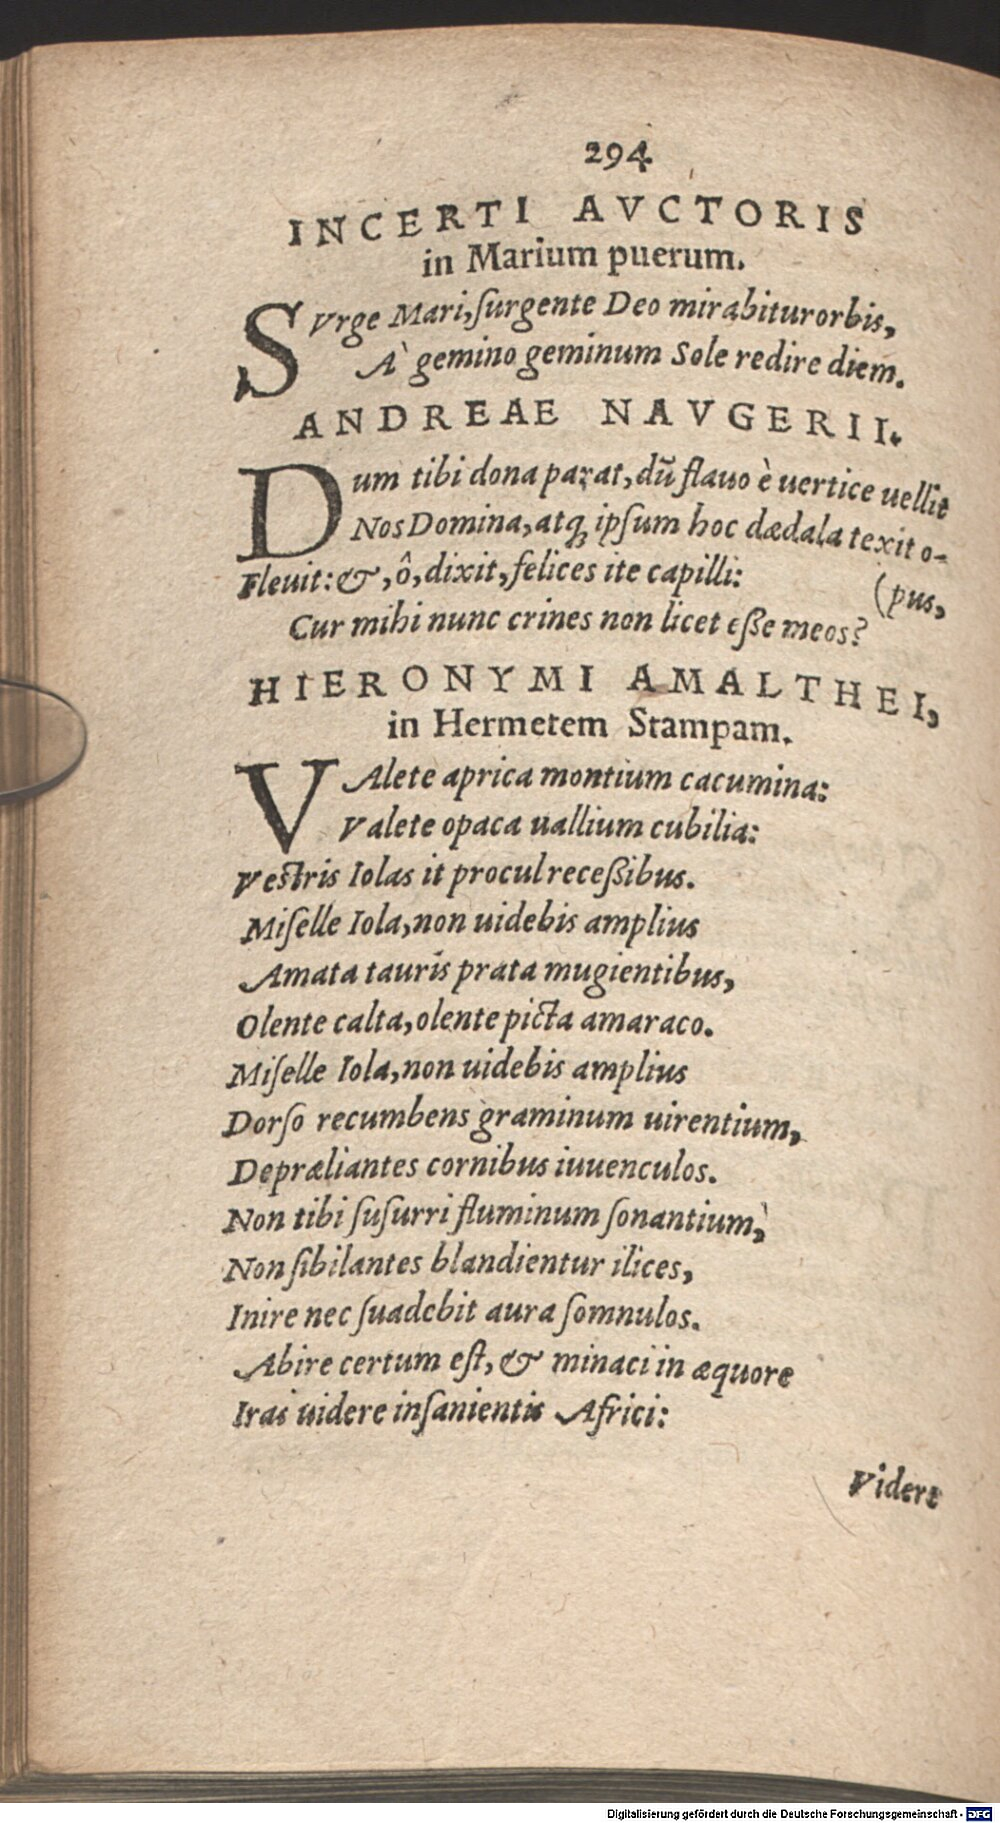 294
INCERTI AVCTORIS
in Marium puerum.
SVrge Mari, ſurgente Deo mirabitur orbis,
À gemino geminum Sole redire diem.
ANDREAE NAVGERII.
Dum tibi dona parat, dū flauo è uertice uellit
Nos Domina, atq; ipſum hoc dædala texit o-
Fleuit: &, ô, dixit, felices ite capilli: (pus,
Cur mihi nunc crines non licet eſſe meos?
HIERONYMI AMALTHEI,
in Hermetem Stampam.
VAlete aprica montium cacumina:
Valete opaca uallium cubilia:
Vestris Iolas it procul receßibus.
Miſelle Iola, non uidebis amplius
Amata tauris prata mugientibus,
Olente calta, olente picta amaraco.
Miſelle Iola, non uidebis amplius
Dorſo recumbens graminum uirentium,
Depræliantes cornibus iuuenculos.
Non tibi ſuſurri fluminum ſonantium,
Non ſibilantes blandientur ilices,
Inire nec ſuadebit aura ſomnulos.
Abire certum eſt, & minaci in æquore
Iras uidere inſanientis Africi:
Videre
Digitalisierung gefördert durch die Deutsche Forschungsgemeinschaft - DFG